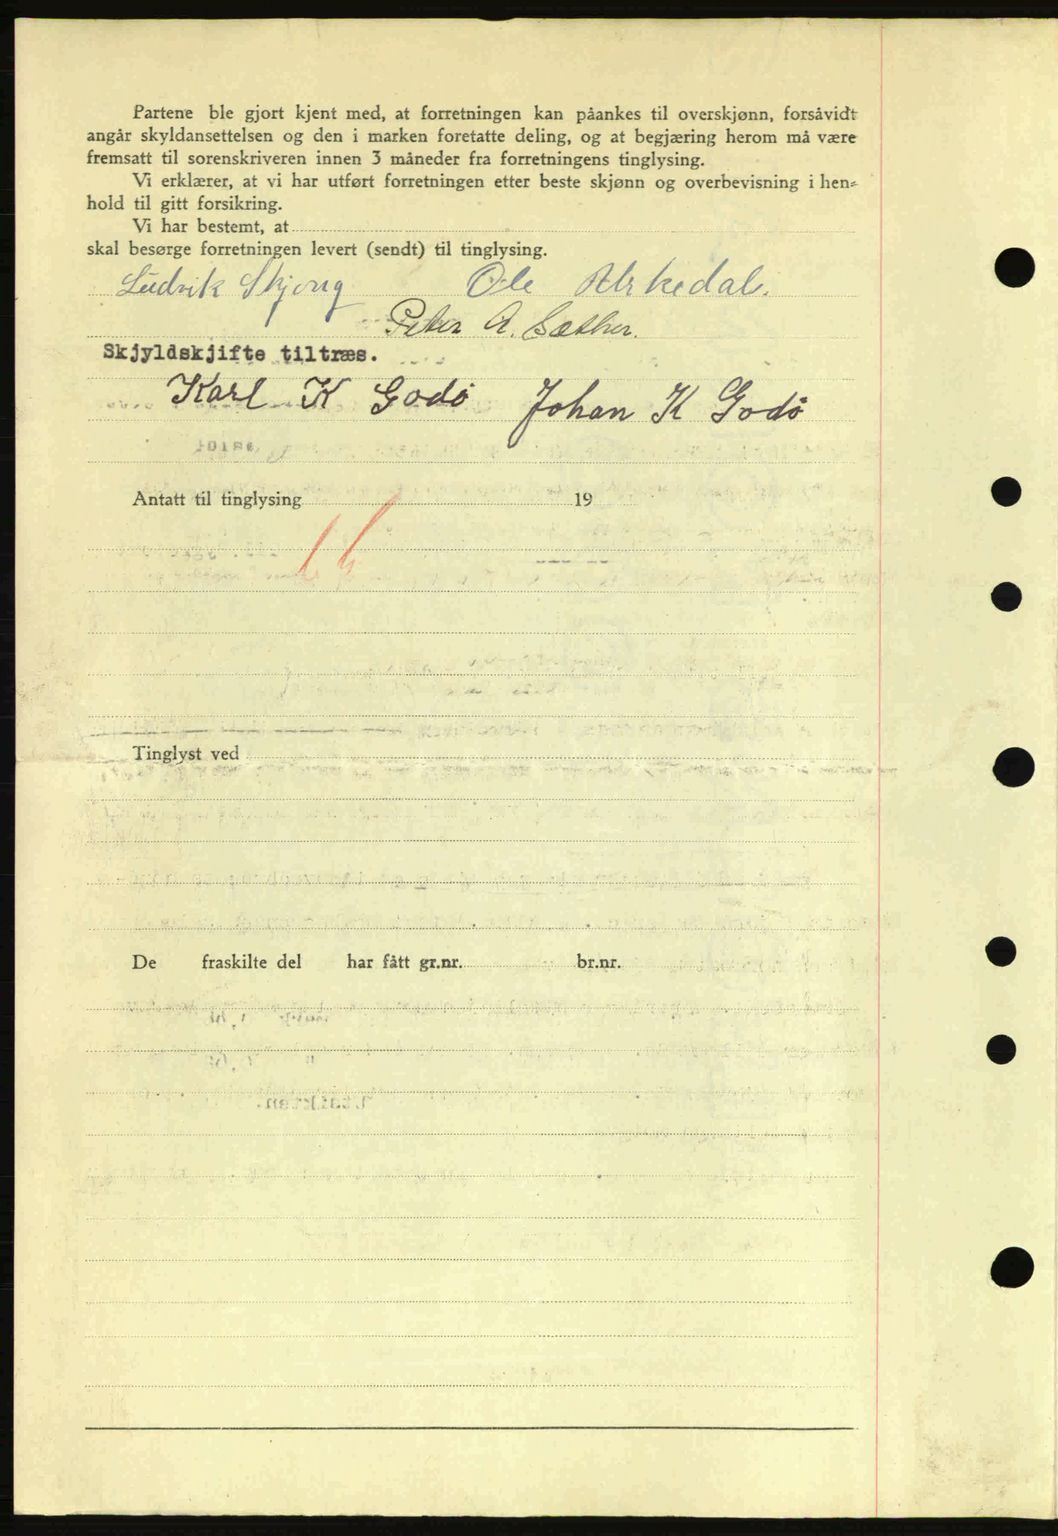 Partene ble gjort kjent med, at forretningen kan påankes til overskjønn, forsåvidt
angår skyldansettelsen og den i marken foretatte deling, og at begjæring herom må være
fremsatt til sorenskriveren innen 3 måneder fra forretningens tinglysing.
Vi erklærer, at vi har utført forretningen etter beste skjønn og overbevisning i hen-
hold til gitt forsikring.
Vi har bestemt, at
skal besørge forretningen levert (sendt) til tinglysing.
Ludvik Skjong Ole Alrkedal.
Peter A. Sæther.
Skjyldskjifte tiltræs.
Karl K Godø Johan K Godø
Antatt til tinglysing 19
Tinglyst ved
De fraskilte del har fått gr.nr. br.nr.